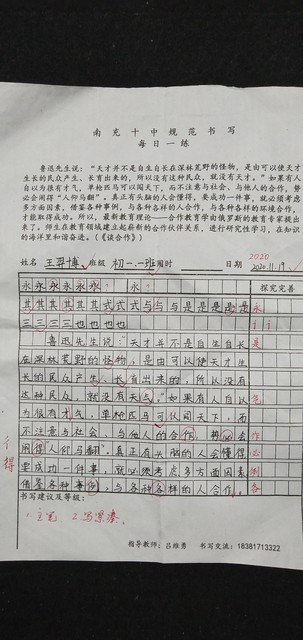 南充十中规范书写
每日一练
鲁迅先生说：“天才并不是自生自长在深林荒野的怪物，是由可以使天才
生长的民众产生、长育出来的，所以没有这种民众，就没有天才。”如果有人
自以为很有才气，单枪匹马可以闯天下，而不注意与社会、与他人的合作，势
必会闹得“人仰马翻”。真正有头脑的人会懂得，要成功一件事，就必须考虑
多方面因素，借鉴各种事例，与各种各样的人合作，与各种各样的环境合作，
才能取得成功。所以，最新教育理论——合作教育学由俄罗斯的教育专家提出
来了。师生在教育领域建立起崭新的合作伙伴关系，进行研究性学习，在知识
的海洋里和谐奋进。（《谈合作》）
2020
姓名 王羿博 班级 初一.一班 用时 日期 2020.11.19
永永永永永永 永 探究完善
其其其其其其式式式与与与是是是是是 永
三三三三也也也也也
鲁迅先生说：“天才并不是自生自长 是
在深林荒野的怪物，是由可以使天才生
长的民众产生、长育出来的，所以没有
这种民众，就没有天才。”如果有人自以
为很有才气，单枪匹马可以闯天下，而
不注意与社会、与他人的合作，势必会 作
闹得“人仰马翻”。真正有头脑的人会懂得 必
要成功一件事，就必须考虑多方面因素 例
借鉴各种事例，与各种各样的人合作。 各
得
书写建议及等级：
指导教师：吕维勇 书写交流：18381713322